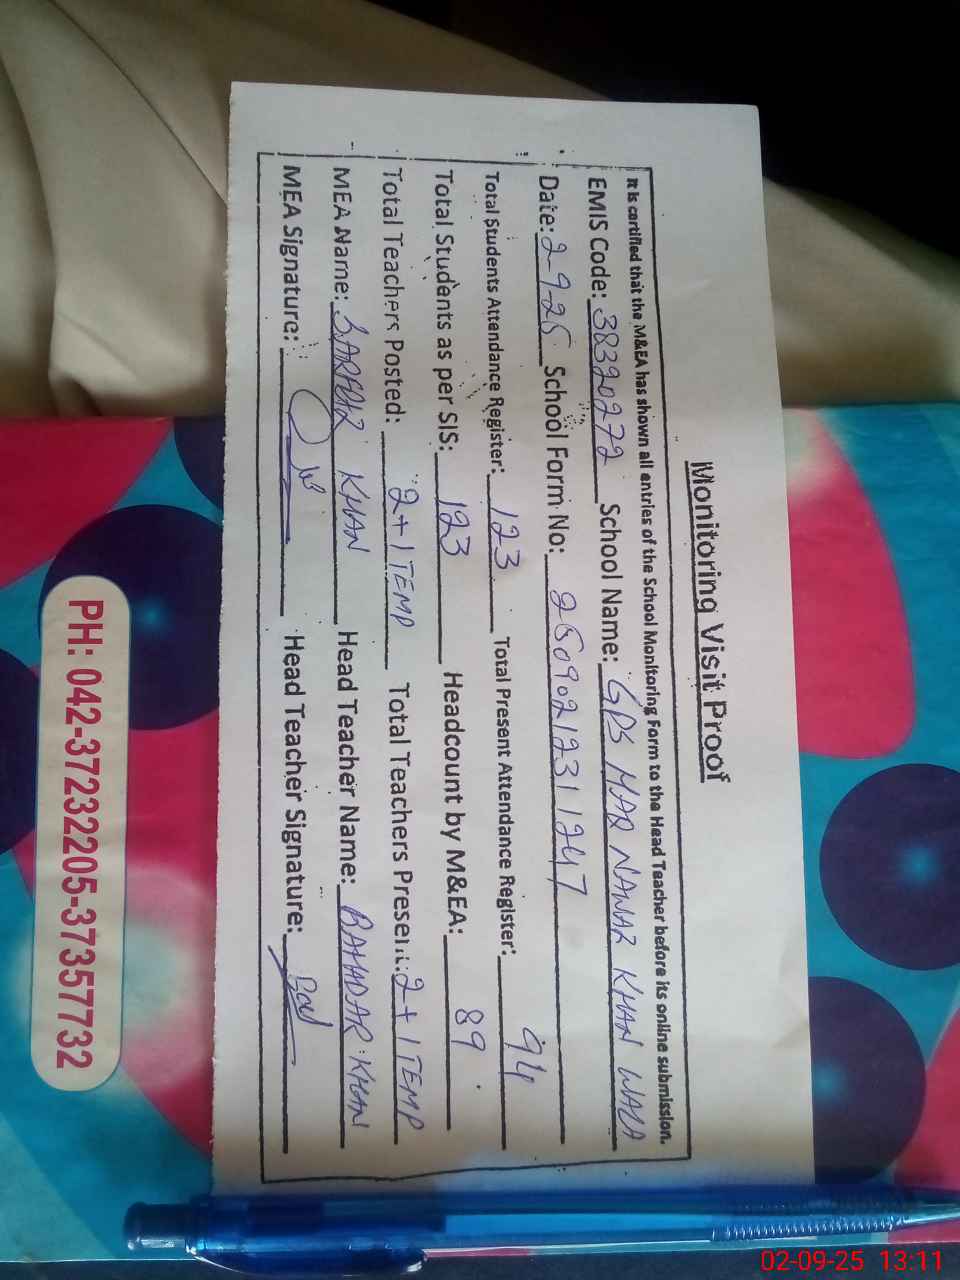 Monitoring Visit Proof
It is certified that the M&EA has shown all entries of the School Monitoring Form to the Head Teacher before its online submission.
EMIS Code: 38320272 School Name: GPS MAR NAWAZ KHAN WALA
Date: 2-9-25 School Form No: 2509021231247
Total Students Attendance Register: 123 Total Present Attendance Register: 94
Total Students as per SIS: 123 Headcount by M&EA: 89
Total Teachers Posted: 2+1 TEMP Total Teachers Present: 2+1 TEMP
MEA Name: SARFRAZ KHAN Head Teacher Name: BAHADAR KHAN
MEA Signature: Head Teacher Signature:
PH: 042-37232205-37357732
02-09-25 13:11